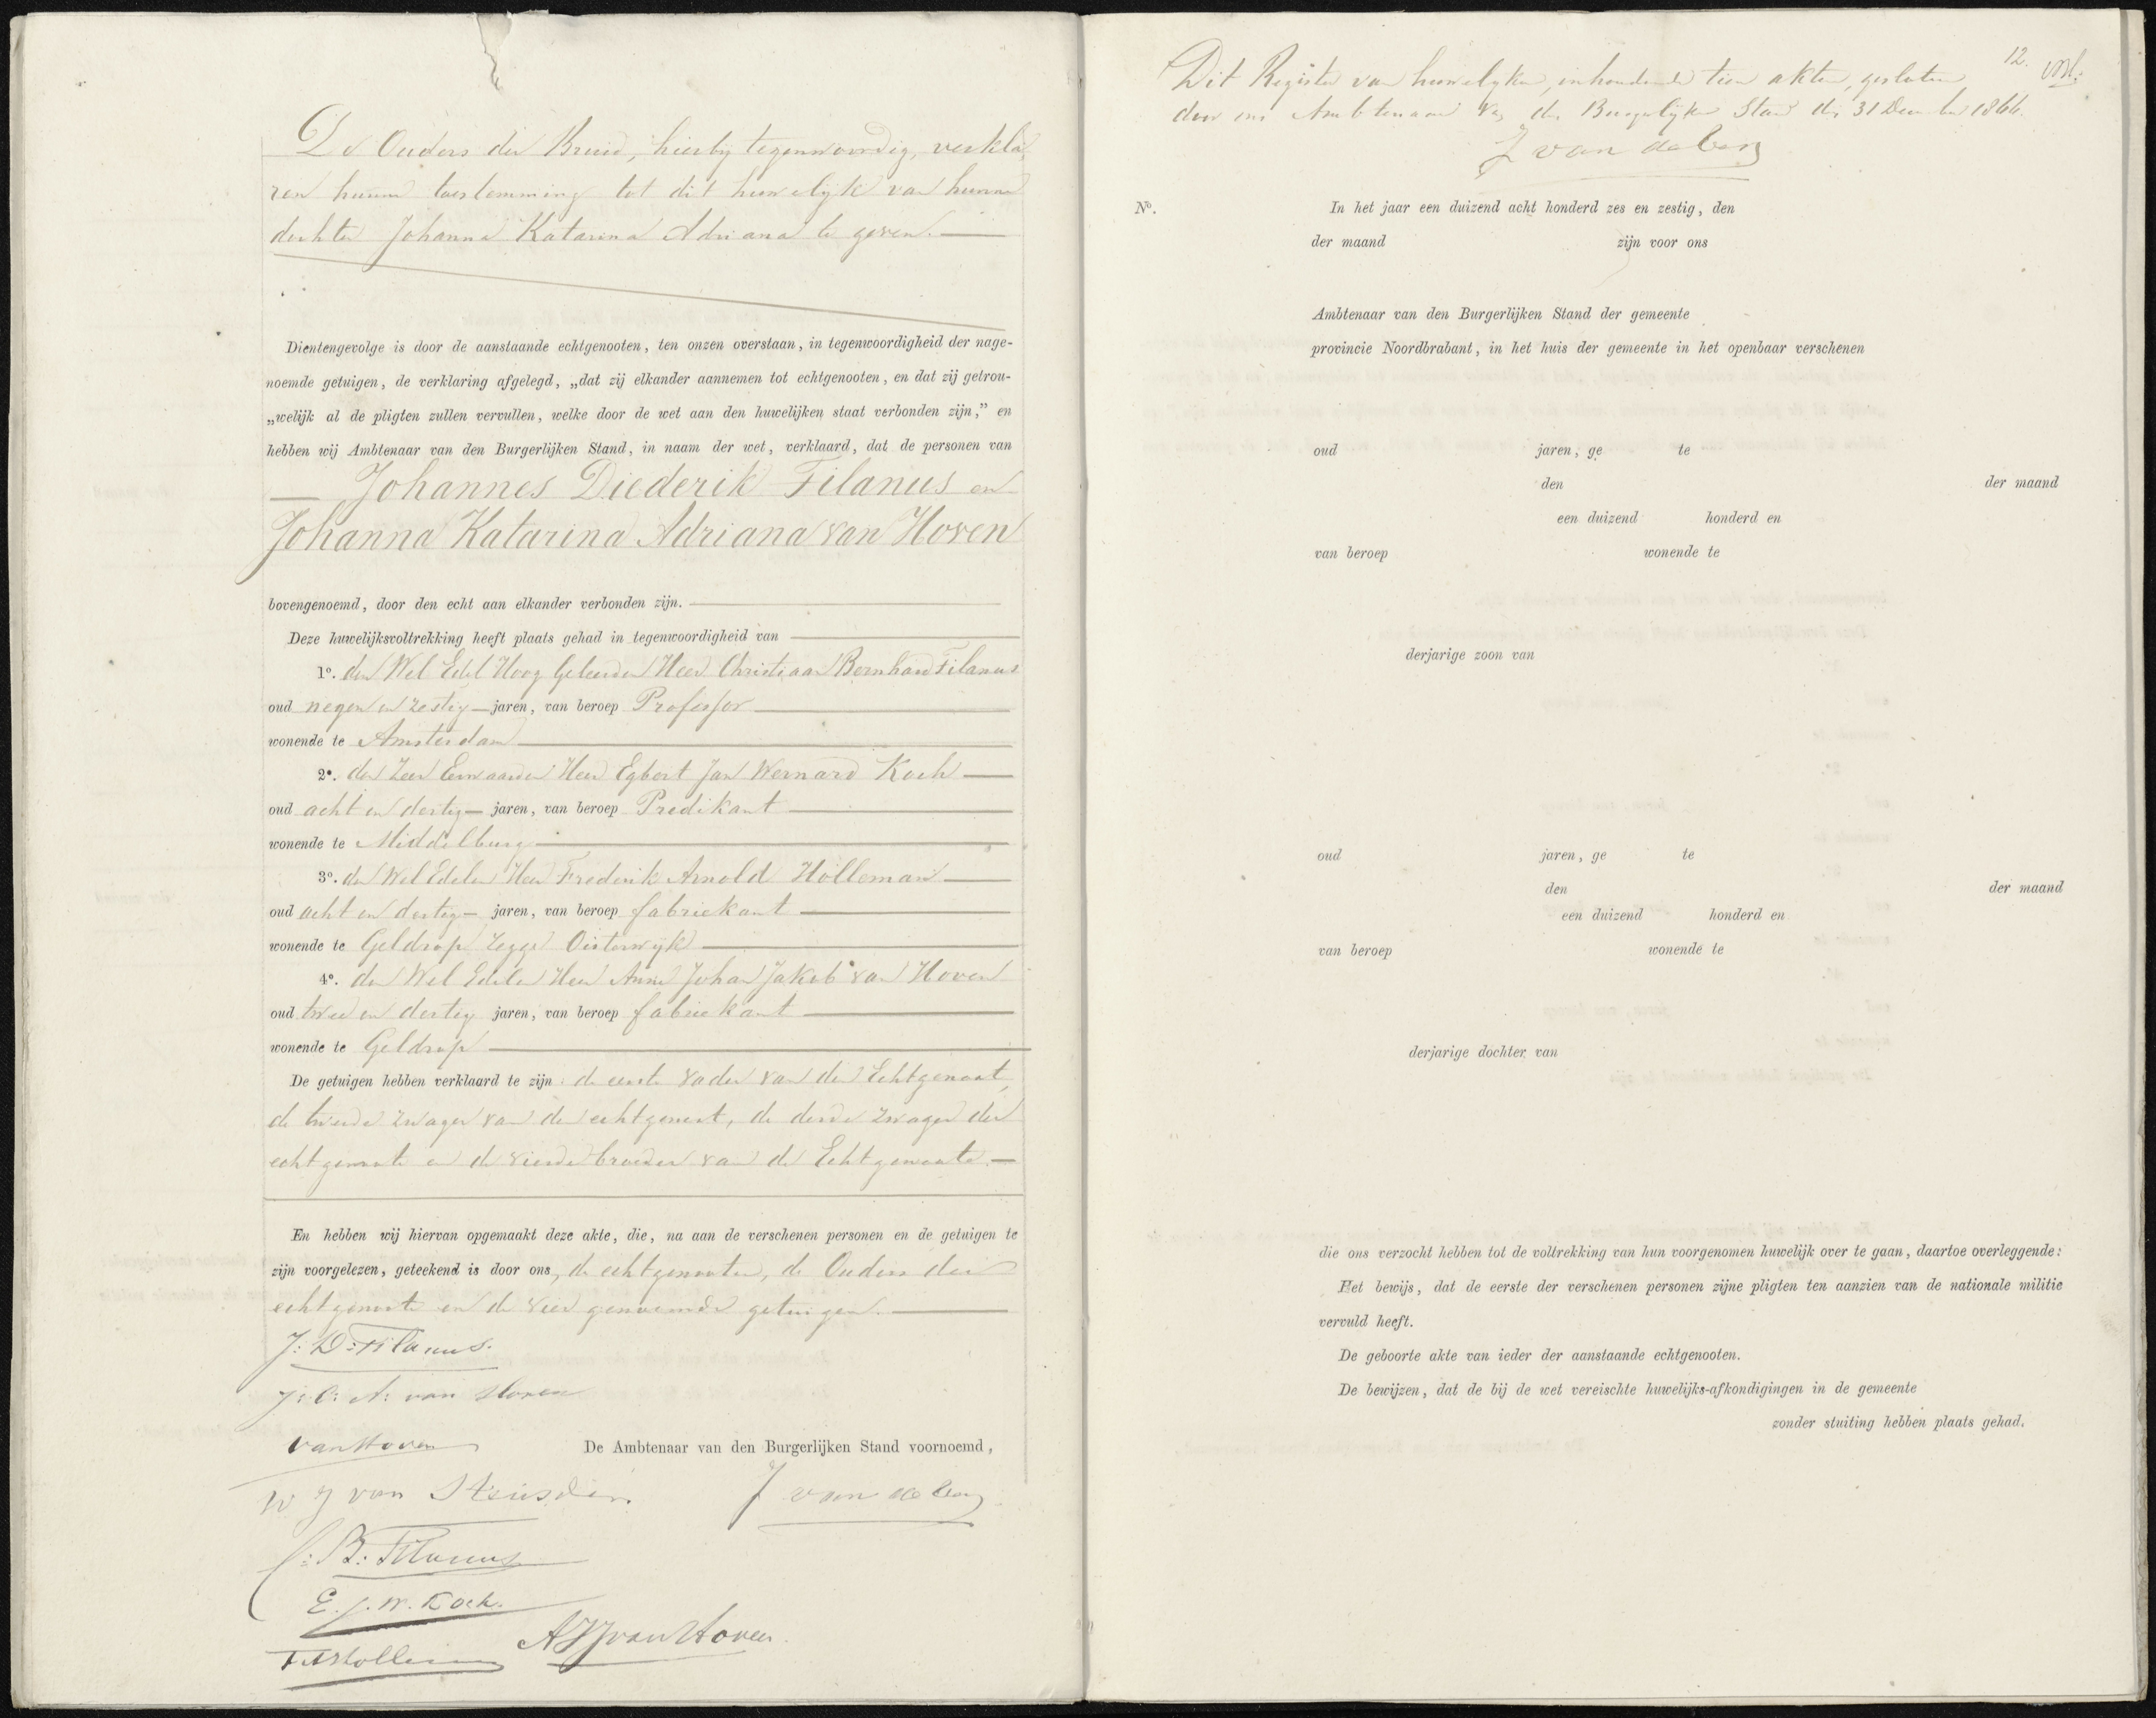 De Ouders der Bruid, hierbij tegenwoordig, verkla
ren hunne toestemming tot dit huwelijk van hunne
dochter Johanna Katarina Adriana te geven.
Dientengevolge is door de aanstaande echtgenooten, ten onzen overstaan, in tegenwoordigheid der nage-
noemde getuigen, de verklaring afgelegd, „dat zij elkander aannemen tot echtgenooten, en dat zij getrou-
„welijk al de pligten zullen vervullen, welke door de wet aan den huwelijken staat verbonden zijn,” en
hebben wij Ambtenaar van den Burgerlijken Stand, in naam der wet, verklaard, dat de personen van
Johannes Diederik Filanus en
Johanna Katarina Adriana van Hoven
bovengenoemd, door den echt aan elkander verbonden zijn.
Deze huwelijksvoltrekking heeft plaats gehad in tegenwoordigheid van
1o. den Wel Edel Hoog Geleerden Heer Christiaan Bernhard Filanus
oud negen en zestig jaren, van beroep Professor
wonende te Amsterdam
2o. den Zeer Eerwaarden Heer Egbert Jan Wernard Koch
oud acht en dertig jaren, van beroep Predikant
wonende te Middelburg
3o. den Wel Edelen Heer Frederik Arnold Holleman
oud acht en dertig jaren, van beroep fabriekant
wonende te Geldrop zegge Oisterwijk
4o. den Wel Edelen Heer Anne Johan Jakob van Hoven
oud twee en dertig jaren, van beroep fabriekant
wonende te Geldrop
De getuigen hebben verklaard te zijn de eerste vader van den Echtgenoot,
de tweede zwager van den echtgenoot, de derde zwager der
echtgenoote en de vierde broeder van de Echtgenoote.
En hebben wij hiervan opgemaakt deze akte, die, na aan de verschenen personen en de getuigen te
zijn voorgelezen, geteekend is door ons, de echtgenooten, de Ouders der
echtgenoote en de vier genoemde getuigen.
J: D: Filanus.
J: C: A: van Hoven
van Hoven
De Ambtenaar van den Burgerlijken Stand voornoemd,
W J van Heusden
J van den Berg
C: B: Filanus
E. J. W. Koch.
F A Holleman
A J J van Hoven
12.
Dit Register van huwelijken, inhoudende tien akten, gesloten
door ons Ambtenaar van den Burgerlijken Stand den 31 December 1866.
J van den Berg
No.
In het jaar een duizend acht honderd zes en zestig, den
der maand zijn voor ons
Ambtenaar van den Burgerlijken Stand der gemeente
provincie Noordbrabant, in het huis der gemeente in het openbaar verschenen
oud jaren, ge te
den der maand
een duizend honderd en
van beroep wonende te
derjarige zoon van
oud jaren, ge te
den der maand
een duizend honderd en
van beroep wonende te
derjarige dochter van
die ons verzocht hebben tot de voltrekking van hun voorgenomen huwelijk over te gaan, daartoe overleggende:
Het bewijs, dat de eerste der verschenen personen zijne pligten ten aanzien van de nationale militie
vervuld heeft.
De geboorte akte van ieder der aanstaande echtgenooten.
De bewijzen, dat de bij de wet vereischte huwelijks-afkondigingen in de gemeente
zonder stuiting hebben plaats gehad.